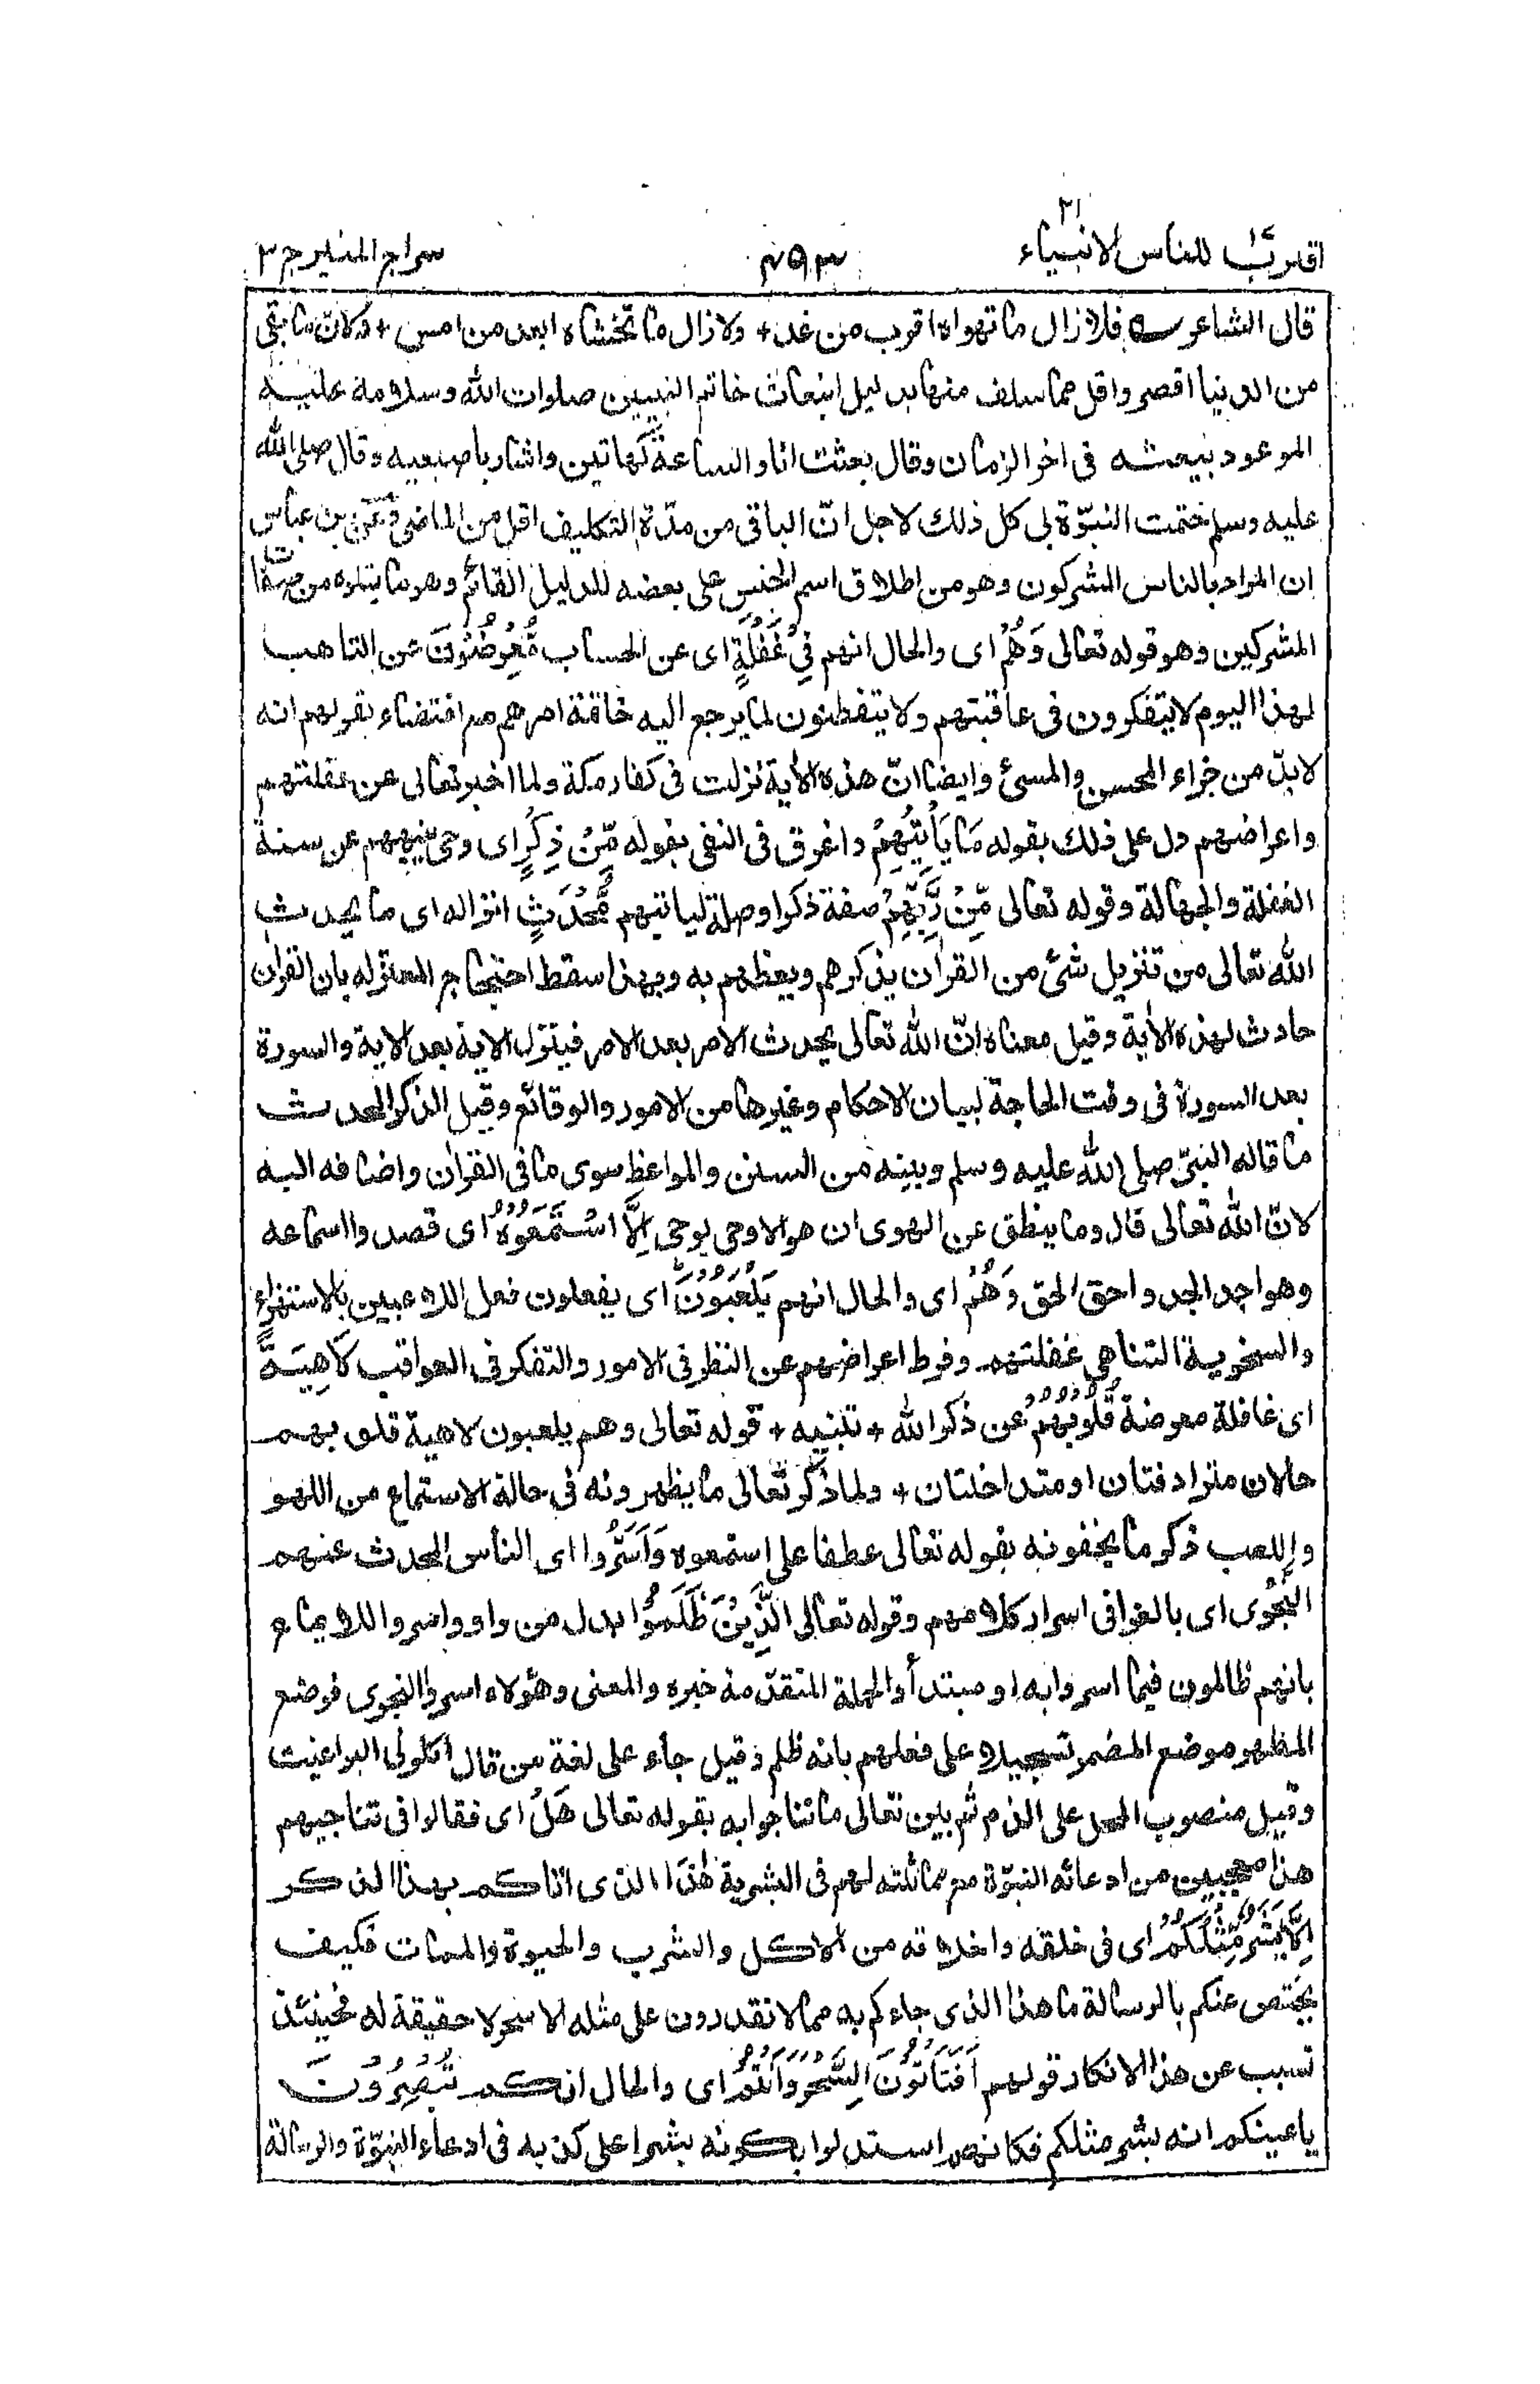 اقترب للناس ١٧ الانبياء ٢١
٤٩٣
سراج المنير ج ٣
قال الشاعر ؎ فلا زال ما تهواه اقرب من غد + ولا زال ما تخشاه ابعد من امس + ولان ما بقى
من الدنيا اقصر واقل مما سلف منها بدليل ابنعاث خاتم النبيين صلوات الله وسلامه عليه
الموعود ببعثه فى اخر الزمان وقال بعثت انا والساعة كهاتين واشار باصبعيه وقال صلى الله
عليه وسلم ختمت النبوّة بى كل ذلك لاجل انّ الباقى من مدّة التكليف اقل من الماضى وعن بن عباس
ان المراد بالناس المشركون وهو من اطلاق اسم الجنس على بعضه للدليل القائم وهو ما يتلوه من صفات
المشركين وهو قوله تعالى وَهُمْ اى والحال انهم فِىْ غَفْلَةٍ اى عن الحساب مُّعْرِضُوْنَ عن التاهب
لهذا اليوم لا يتفكرون فى عاقبتهم ولا يتفطنون لما يرجع اليه خاتمة امرهم مع اقتضاء عقولهم انه
لا بدّ من جزاء المحسن والمسئ وايضا انّ هذه الاية نزلت فى كفار مكة ولما اخبر تعالى عن غفلتهم
واعراضهم دل على ذلك بقوله مَا يَأْتِيْهِمْ واغرق فى النفى بقوله مِّنْ ذِكْرٍ اى وحى ينبههم عن سنة
الغفلة والجهالة وقوله تعالى مِّنْ رَّبِّهِمْ صفة ذكر او صلة لياتيهم مُّحْدَثٍ انزاله اى ما يحدث
الله تعالى من تنزيل شئ من القران يذكرهم ويعظهم به وبهذا سقط احتجاج المعتزله بان القران
حادث لهذه الاية وقيل معناه انّ الله تعالى يحدث الامر بعد الامر فينزل الاية بعد الاية والسورة
بعد السورة فى وقت الحاجة لبيان الاحكام وغيرها من الامور والوقائع وقيل الذكر المحدث
ما قاله النبىّ صلى الله عليه وسلم وبينه من السنن والمواعظ سوى ما فى القران واضافه اليه
لانّ الله تعالى قال وما ينطق عن الهوى ان هو الا وحى يوحى اِلَّا اسْتَمَعُوْهُ اى قصدوا اسماعه
وهو اجد الجد واحق الحق وَهُمْ اى والحال انهم يَلْعَبُوْنَ اى يفعلون فعل اللاعبين بالاستهزاء
والسخرية لتناهى غفلتهم وفرط اعراضهم عن النظر فى الامور والتفكر فى العواقب لَاهِيَةً
اى غافلة معرضة قُلُوْبُهُمْ عن ذكر الله + تنبيه + قوله تعالى وهم يلعبون لاهية قلوبهم
حالان مترادفتان او متداخلتان + ولما ذكر تعالى ما يظهرونه فى حالة الاستماع من اللهو
واللعب ذكر ما يخفونه بقوله تعالى عطفا على استمعوه وَاَسَرُّوا اى الناس المحدث عنهم
النَّجْوَى اى بالغوا فى اسرار كلامهم وقوله تعالى الَّذِيْنَ ظَلَمُوْا بدل من واو واسروا للايماء
بانهم ظالمون فيما اسروا به او مبتدأ والجملة المتقدّمة خبره والمعنى وهؤلاء اسروا النجوى فوضع
المظهر موضع المضمر تسجيلا على فعلهم بانه ظلم وقيل جاء على لغة من قال اكلونى البراغيث
وقيل منصوب المحل على الذم ثم بين تعالى ما تناجوا به بقوله تعالى هَلْ اى فقالوا فى تناجيهم
هذا معجبين من ادعائه النبوّة مع مماثلته لهم فى البشرية هٰذَا الذى اتاكم بهذا الذكر
اِلَّا بَشَرٌ مِّثْلُكُمْ اى فى خلقه واخلاقه من الاكل والشرب والحيوة والممات فكيف
يختص عنكم بالرسالة ما هذا الذى جاءكم به مما لا تقدرون على مثله الا سحر لا حقيقة له فحينئذ
تسبب عن هذا الانكار قولهم اَفَتَاْتُوْنَ السِّحْرَ وَاَنْتُمْ اى والحال انكم تُبْصِرُوْنَ
باعينكم انه بشر مثلكم فكانهم استدلوا بكونه بشرا على كذبه فى ادعاء النبوّة والرسالة